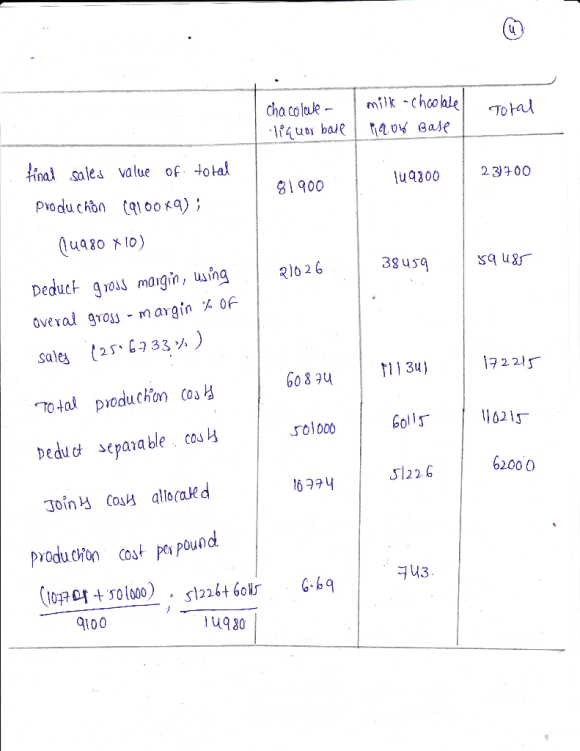 4
chacolate - milk - choolate Total
liquor base liquor Base
final sales value of total 81900 149800 231700
production (9100x9);
(14980 x10)
Deduct gross margin, using 21026 38459 59485
overal gross - margin % OF
sales (25.6733%)
Total production costs 60874 111341 172215
Deduct separable costs 501000 60115 110215
Joints costs allocated 10774 51226 62000
production cost per pound 6.69 743.
(10774 + 501000) ; 51226+60115
9100 14980